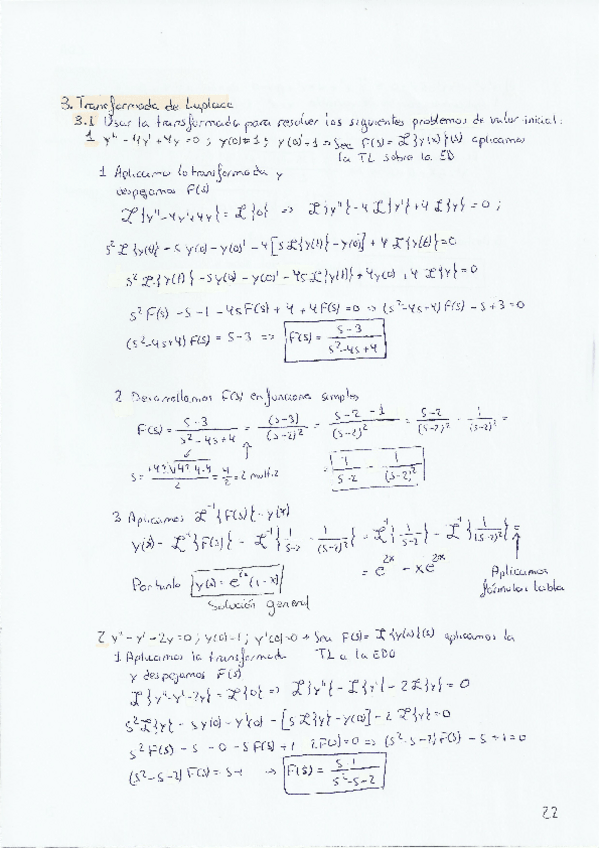 3. Transformada de Laplace
3.1 Usar la transformada para resolver los siguientes problemas de valor inicial:
1 y'' - 4y' + 4y = 0 ; y(0)=1 ; y(0)'=1 → Sea F(s) = ℒ{y(x)}(s) aplicamos
la TL sobre la ED
1 Aplicamos la transformada y
despejamos F(s)
ℒ{y''-4y'+4y} = ℒ{0} => ℒ{y''} - 4ℒ{y'} + 4ℒ{y} = 0 ;
s²ℒ{y(t)} - s y(0) - y(0)' - 4[sℒ{y(t)} - y(0)] + 4ℒ{y(t)} = 0
s²ℒ{y(t)} - sy(0) - y(0)' - 4sℒ{y(t)} + 4y(0) + 4ℒ{y} = 0
s²F(s) - s - 1 - 4sF(s) + 4 + 4F(s) = 0 => (s²-4s+4)F(s) - s + 3 = 0
(s²-4s+4) F(s) = s-3 => F(s) = (s-3)/(s²-4s+4)
2 Desarrollamos F(s) en funciones simples
F(s) = (s-3)/(s²-4s+4) = (s-3)/(s-2)² = (s-2-1)/(s-2)² = (s-2)/(s-2)² - 1/(s-2)² =
s = = 4/2 = 2 mult. 2 = 1/(s-2) - 1/(s-2)²
3 Aplicamos ℒ⁻¹{F(s)} = y(x)
y(x) = ℒ⁻¹{F(s)} = ℒ⁻¹{1/(s-2) - 1/(s-2)²} = ℒ⁻¹{1/(s-2)} - ℒ⁻¹{1/(s-2)²} =
= e^2x - xe^2x
Aplicamos
fórmulas tabla
Por tanto y(x) = e^2x (1-x)
Solución general
2 y'' - y' - 2y = 0 ; y(0)=1 ; y'(0)=0 → Sea F(s) = ℒ{y(x)}(s) aplicamos la
TL a la EDO
1. Aplicamos la transformada
y despejamos F(s)
ℒ{y''-y'-2y} = ℒ{0} => ℒ{y''} - ℒ{y'} - 2ℒ{y} = 0
s²ℒ{y} - sy(0) - y'(0) - [sℒ{y} - y(0)] - 2ℒ{y} = 0
s²F(s) - s - 0 - sF(s) + 1 - 2F(s) = 0 => (s²-s-2)F(s) - s + 1 = 0
(s²-s-2) F(s) = s-1 => F(s) = (s-1)/(s²-s-2)
22